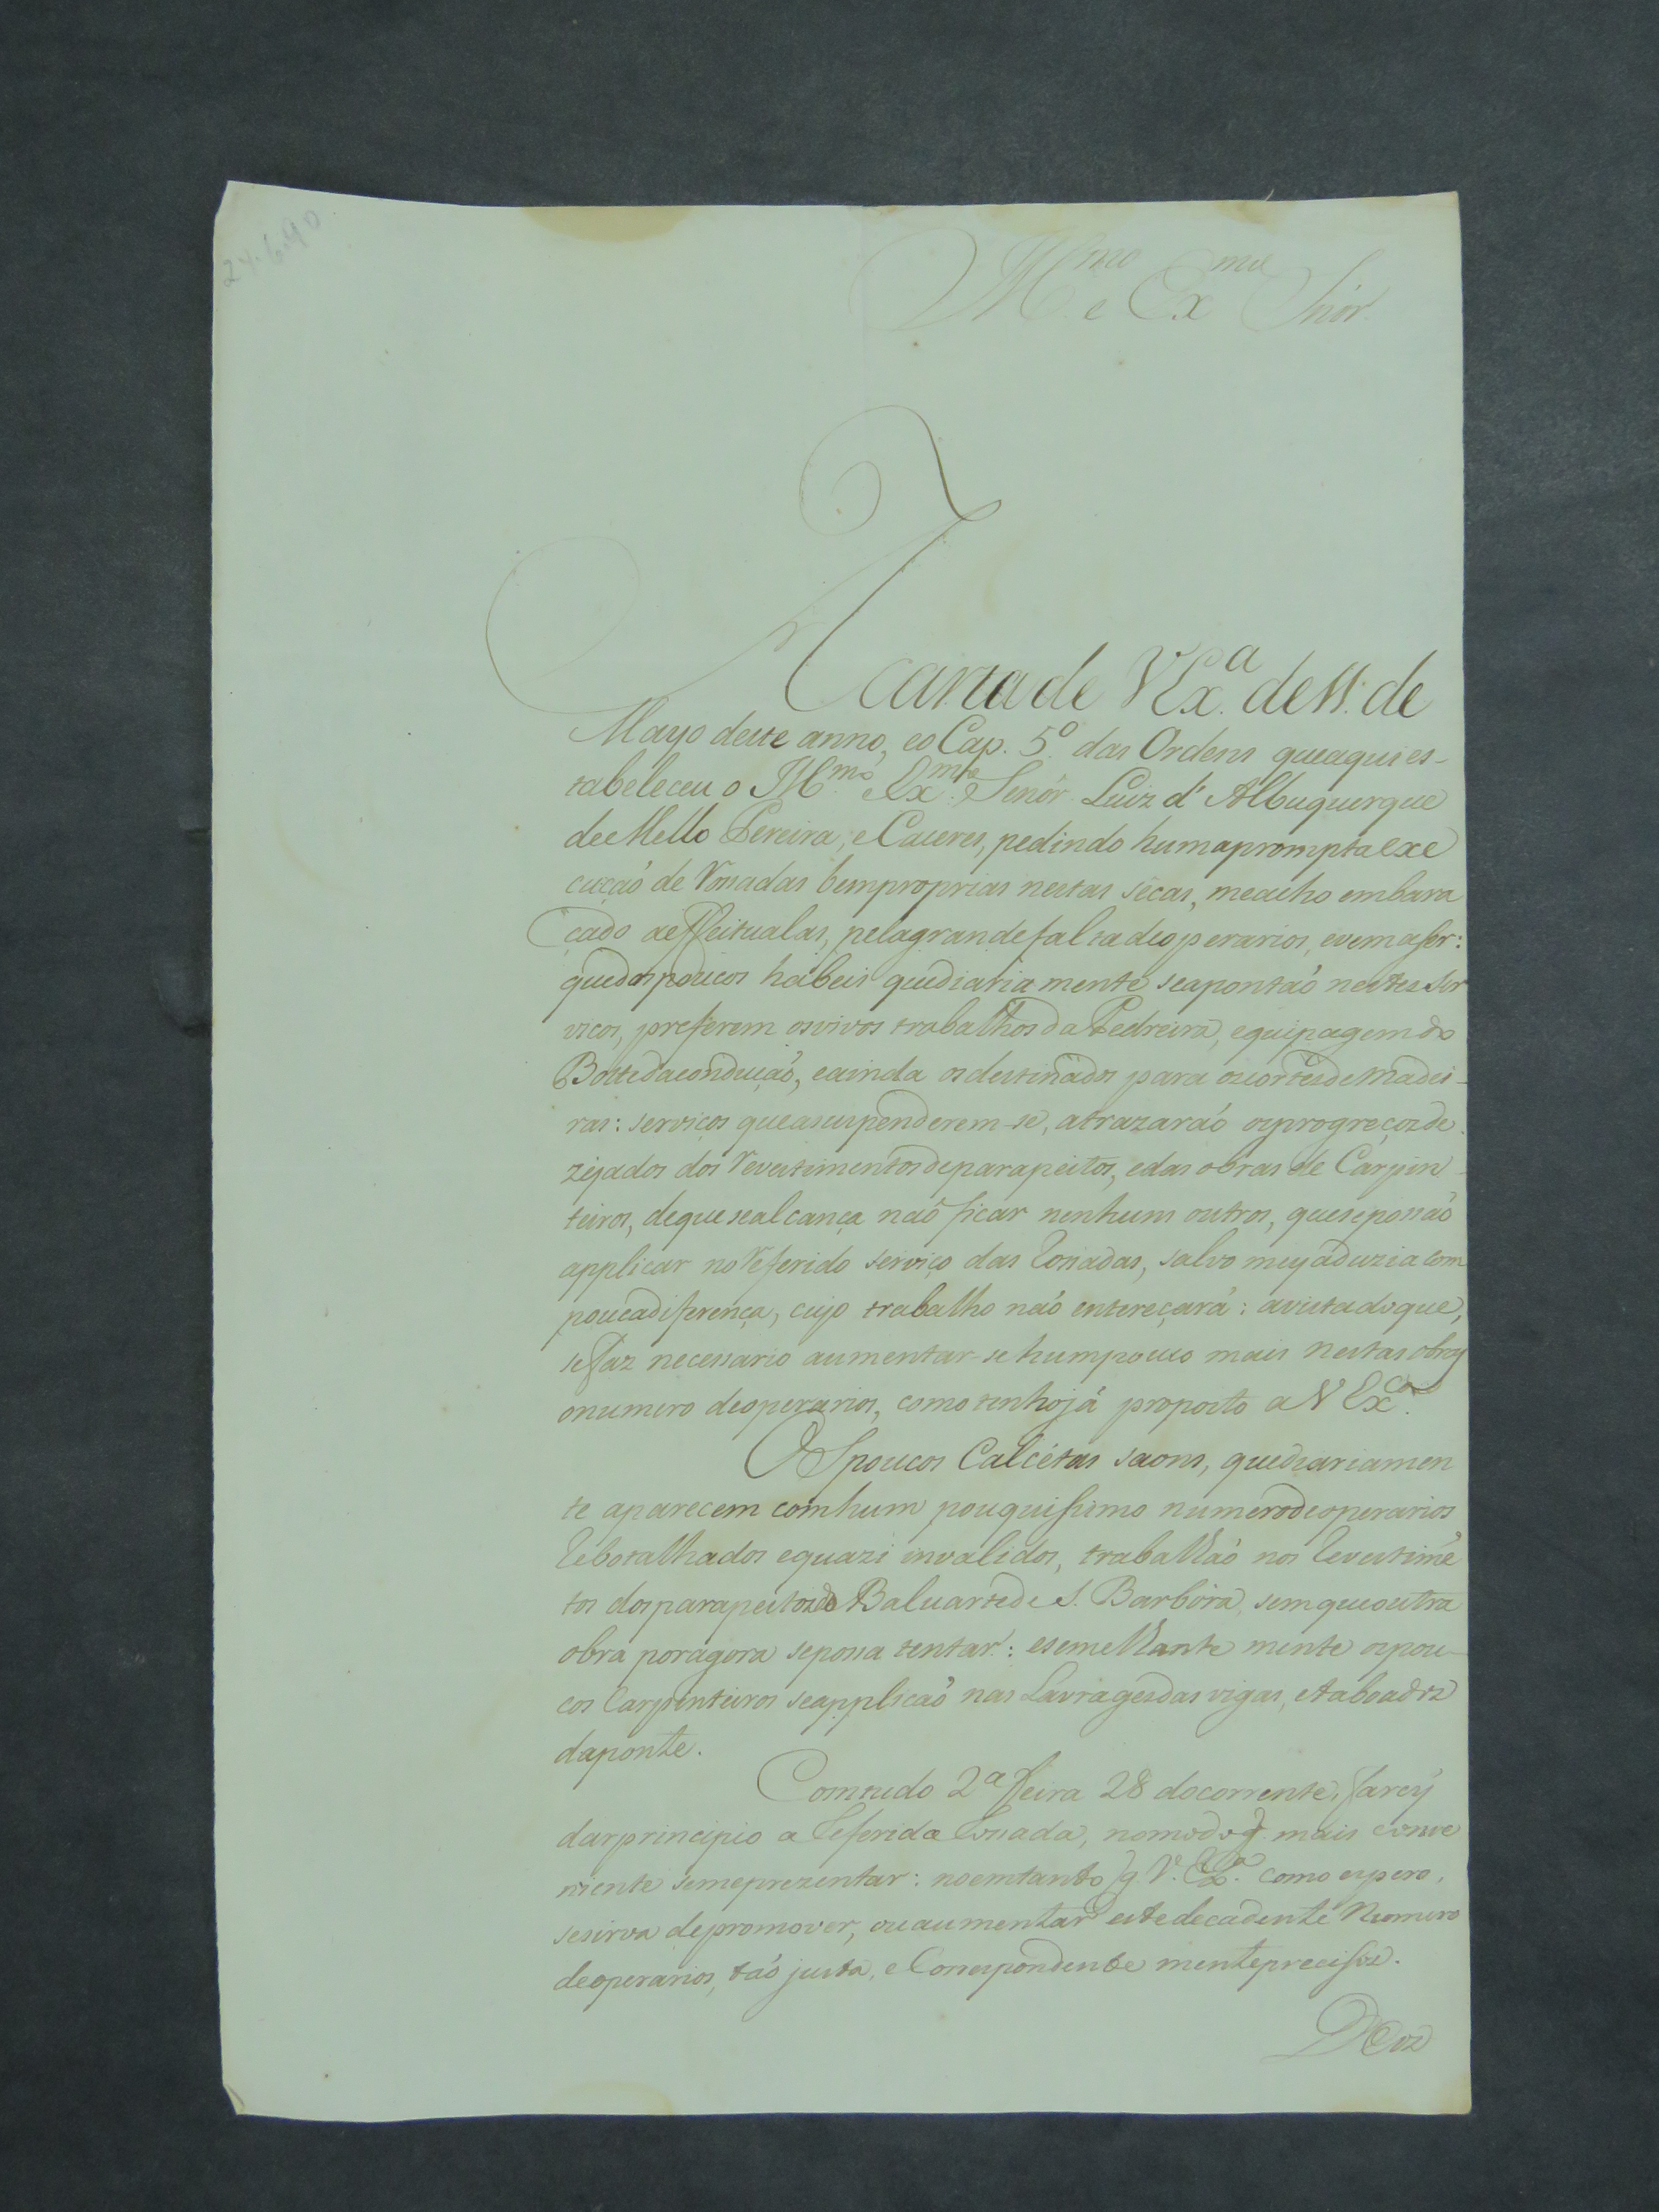 24.6.90
Ill.mo e Ex.mo Snór
A carta de V Ex.a de 11. de
Mayo deste anno, eo Cap. 5.o das Ordens queaqui es-
tabeleceu o Ill.mo eEx.mo Senór Luiz d'Albuquerque
deeMello Pereira, eCaceres, pedindo humaprompta exe
cucçaõ de Rossadas bemproprias nestas secas, meacho embara
çado aeffeitualas, pelagrandefaltadeoperarios, evemaser:
quedospoucos habeis quediariamente seapontaõ nestes Ser
vicos, preferem osvivos trabalhosdaPedreira, equipagemdo
Bottedaconduçaõ, eainda osdestinados para oscortesdeMadei-
ras: serviços queasuspenderem-se, atrazaraõ osprogreçosde
zejados dos Revestimentosdeparapeitos, edas obras de Carpin
teiros, dequesealcança naõ ficar nenhuns outros, queseposaõ
applicar noReferido serviço das Rossadas, salvo meyaduzia com
poucadiferença, cujo trabalho naõ entereçará: avistadoque,
sefaz necessario aumentar-se humpouco mais nestas obras
onumero deoperarios, comotenhojá proposto a V Ex.ca
OS poucos Calcétas saons, quediariamen
te aparecem comhum pouquissimo numerodeoperarios
Rebotalhados equazi invalidos, trabalhaõ nos Revestimẽ
tos dosparapeitosdo Baluartede S. Barbora, semqueoutra
obra poragora seposa tentar: esemelhante mente ospou-
cos Carpinteiros seapplicaõ nas Lavragesdas vigas, etaboados
daponte.
Comtudo 2.a feira 28 docorrente, farey
darprincipio a Referida Rossada, nomodoq mais conve
niente semeprezentar: noemtanto q V. Ex.a como espero,
sesirva depromover, ouaumentar estedecadente Numero
deoperarios, taõ justa, e Correspondente menteprecisos.
Deos